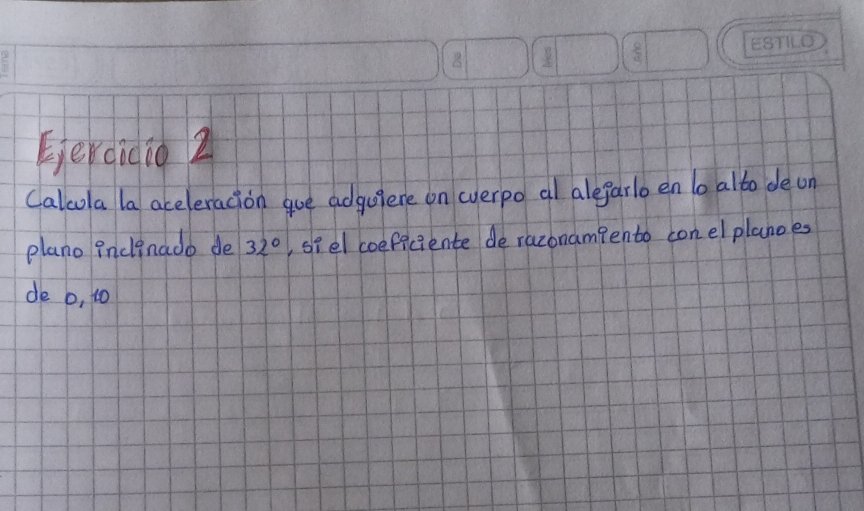 Tema
Día
Mes
Año
ESTILO
Ejercicio 2
Calcula la aceleración que adquiere un cuerpo al alejarlo en lo alto de un
plano inclinado de 32°, si el coeficiente de razonamiento con el plano es
de 0,10